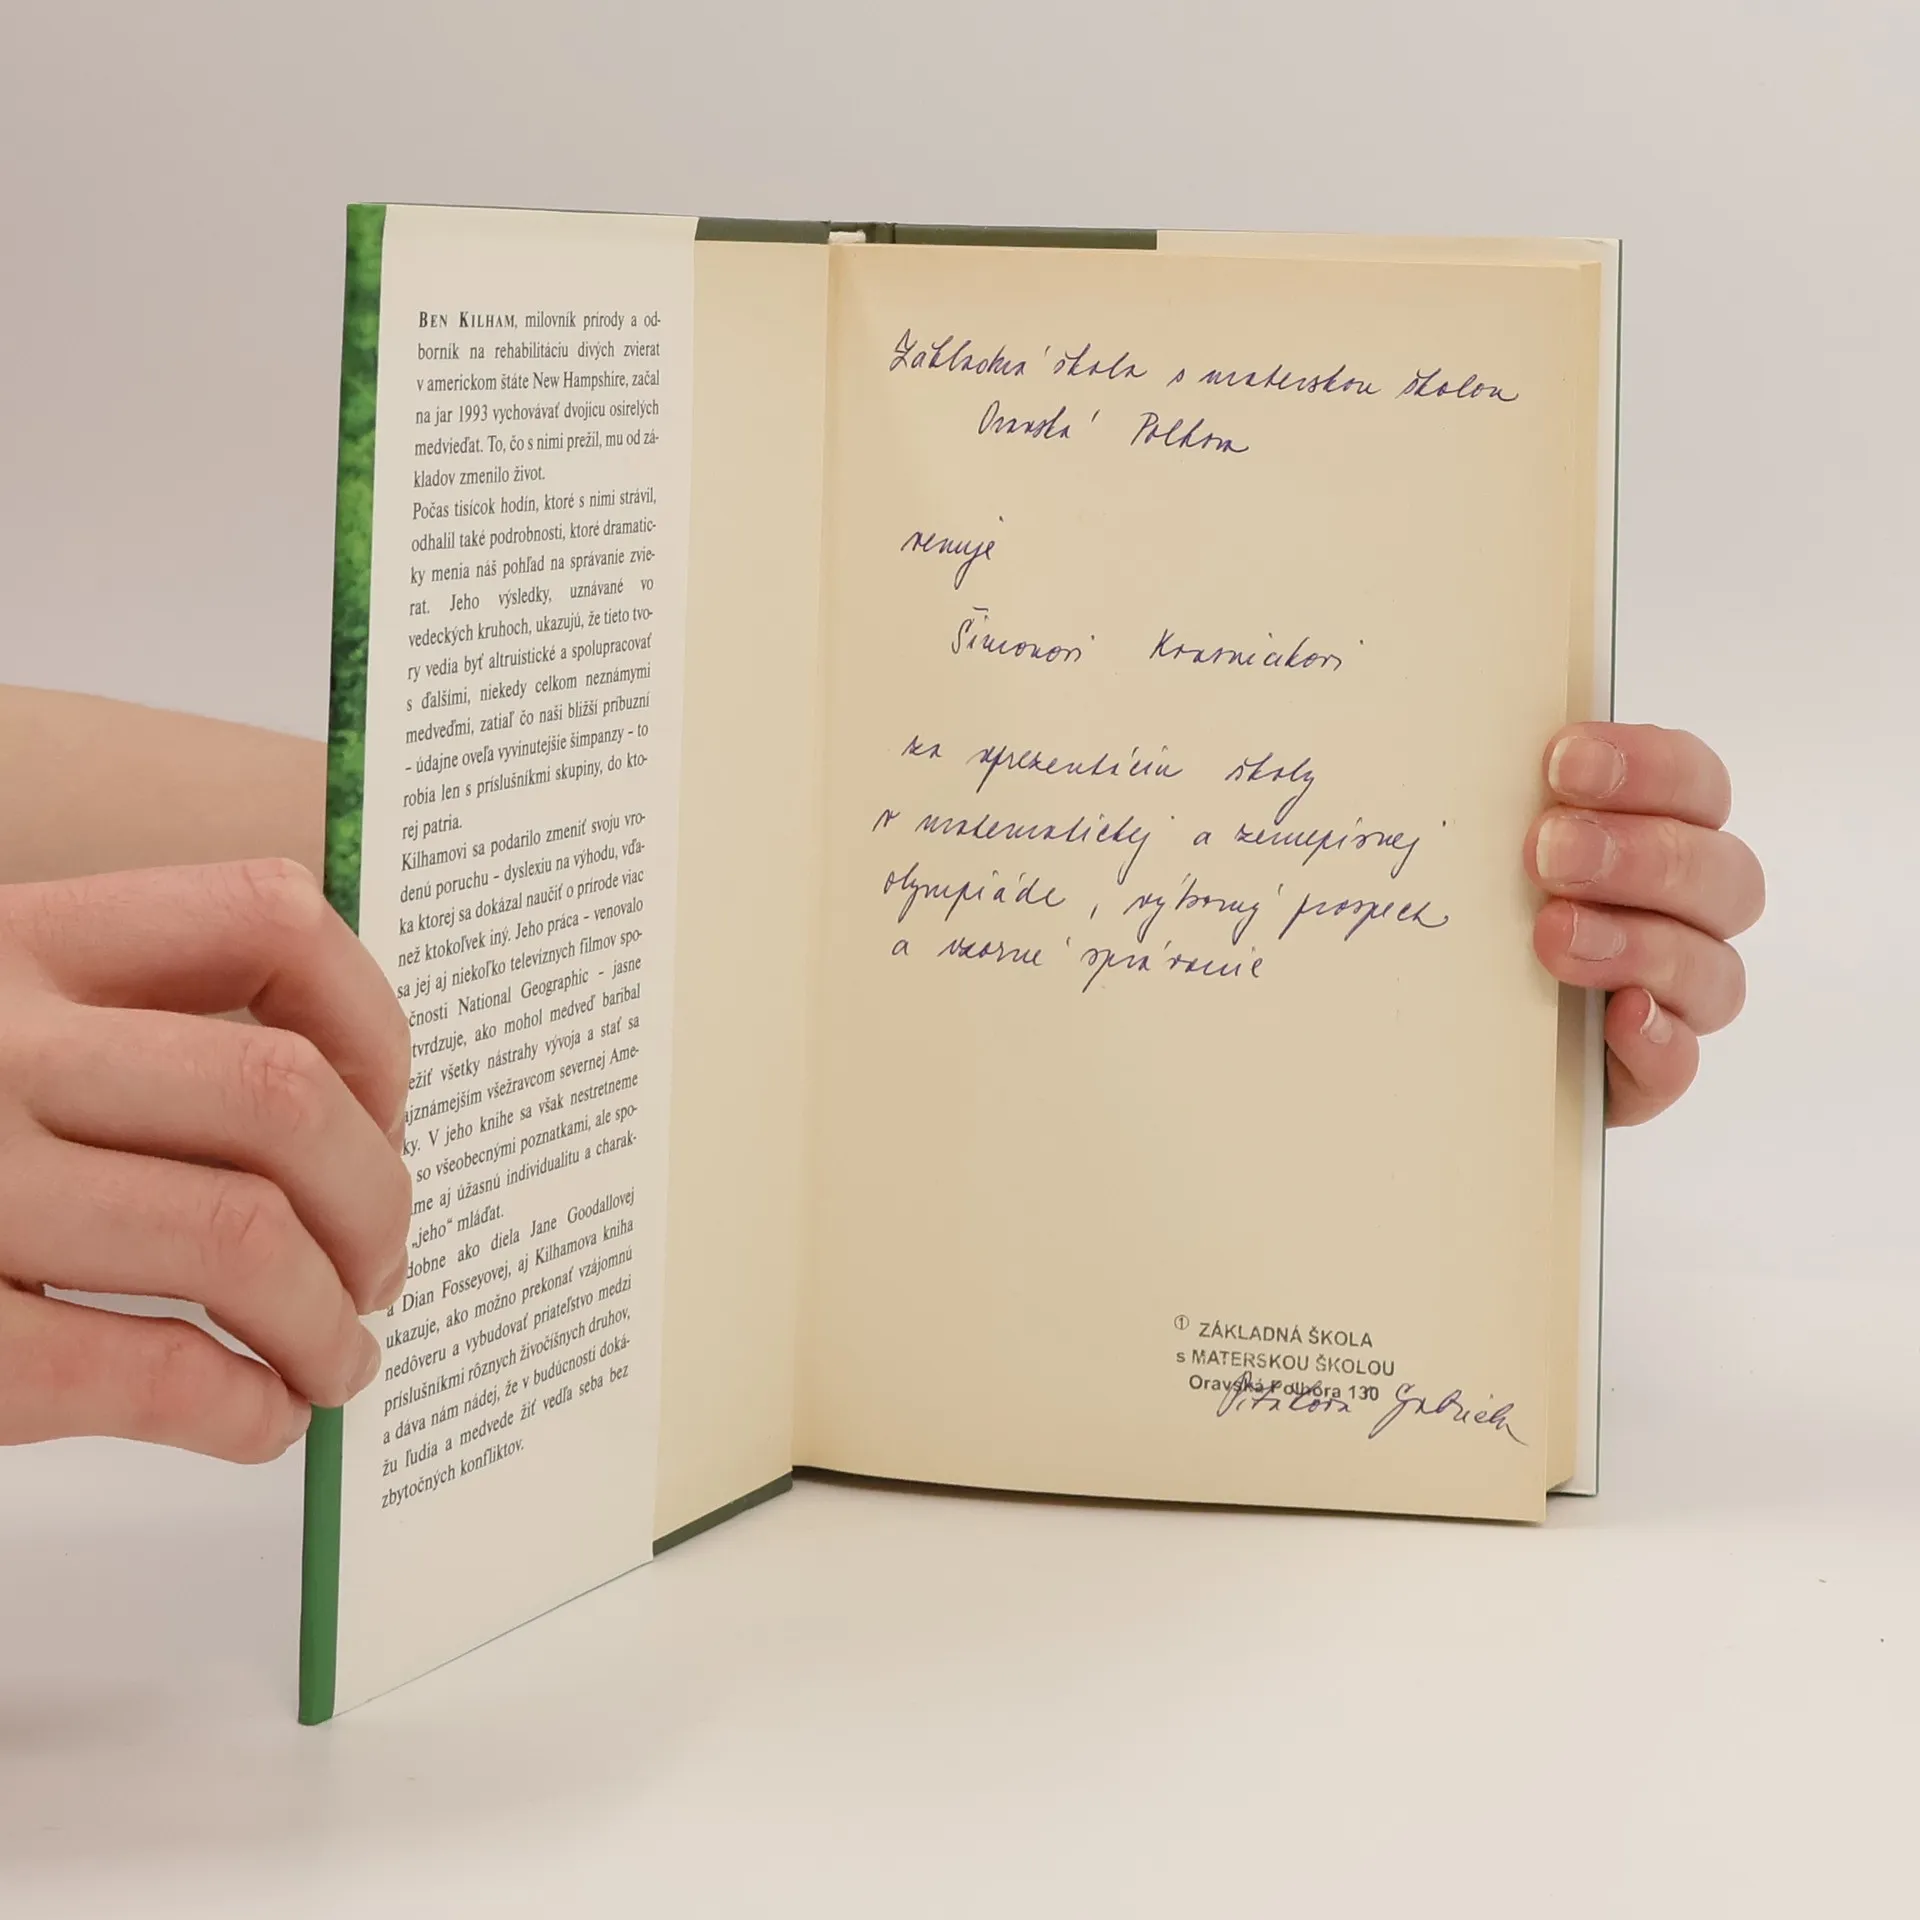 BEN KILHAM, milovník prírody a od-
borník na rehabilitáciu divých zvierat
v americkom štáte New Hampshire, začal
na jar 1993 vychovávať dvojicu osirelých
medvieďat. To, čo s nimi prežil, mu od zá-
kladov zmenilo život.
Počas tisícok hodín, ktoré s nimi strávil,
odhalil také podrobnosti, ktoré dramatic-
ky menia náš pohľad na správanie zvie-
rat. Jeho výsledky, uznávané vo
vedeckých kruhoch, ukazujú, že tieto tvo-
ry vedia byť altruistické a spolupracovať
s ďalšími, niekedy celkom neznámymi
medveďmi, zatiaľ čo naši bližší príbuzní
– údajne oveľa vyvinutejšie šimpanzy – to
robia len s príslušníkmi skupiny, do kto-
rej patria.
Kilhamovi sa podarilo zmeniť svoju vro-
denú poruchu – dyslexiu na výhodu, vďa-
ka ktorej sa dokázal naučiť o prírode viac
než ktokoľvek iný. Jeho práca – venovalo
sa jej aj niekoľko televíznych filmov spo-
čnosti National Geographic – jasne
tvrdzuje, ako mohol medveď baribal
ežiť všetky nástrahy vývoja a stať sa
ajznámejším všežravcom severnej Ame-
ky. V jeho knihe sa však nestretneme
so všeobecnými poznatkami, ale spo-
me aj úžasnú individualitu a charak-
„jeho“ mláďat.
dobne ako diela Jane Goodallovej
a Dian Fosseyovej, aj Kilhamova kniha
ukazuje, ako možno prekonať vzájomnú
nedôveru a vybudovať priateľstvo medzi
príslušníkmi rôznych živočíšnych druhov,
a dáva nám nádej, že v budúcnosti doká-
žu ľudia a medvede žiť vedľa seba bez
zbytočných konfliktov.
Základná škola s materskou školou
Oravská Polhora
venuje
Šimonovi
za reprezentáciu školy
v matematickej a zemepisnej
olympiáde, výborný prospech
a vzorné správanie
① ZÁKLADNÁ ŠKOLA
s MATERSKOU ŠKOLOU
Oravská Polhora 130